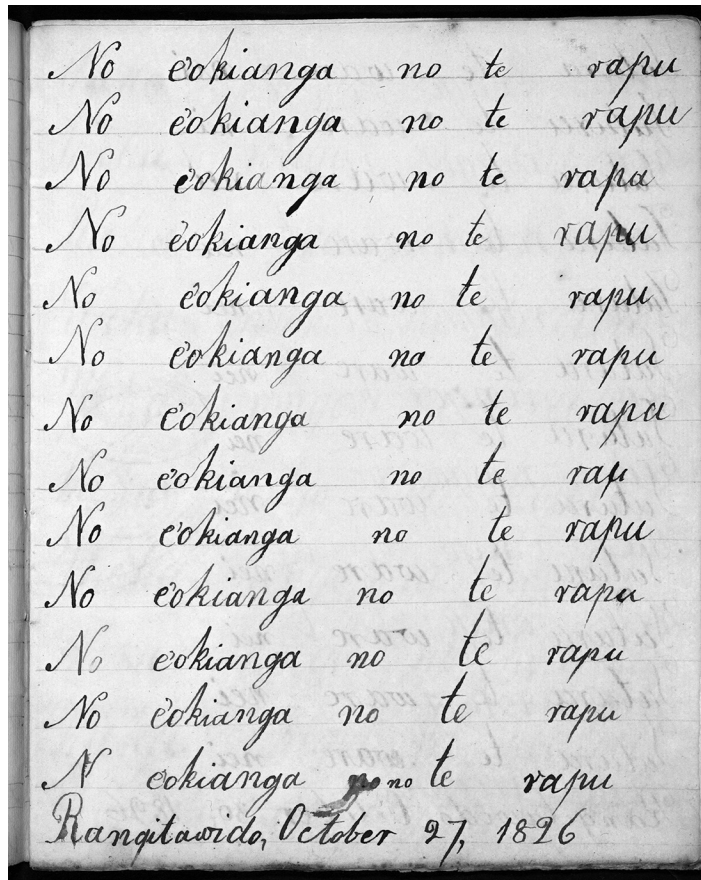 No eokianga no te rapu
No eokianga no te rapu
No eokianga no te rapa
No eokianga no te rapu
No eokianga no te rapu
No eokianga no te rapu
No eokianga no te rapa
No eokianga no te rapu
No eokianga no te rapu
No eokianga no te rapu
No eokianga no te rapu
No eokianga no te rapu
N eokianga no te rapu
Rangitawido, October 27, 1826